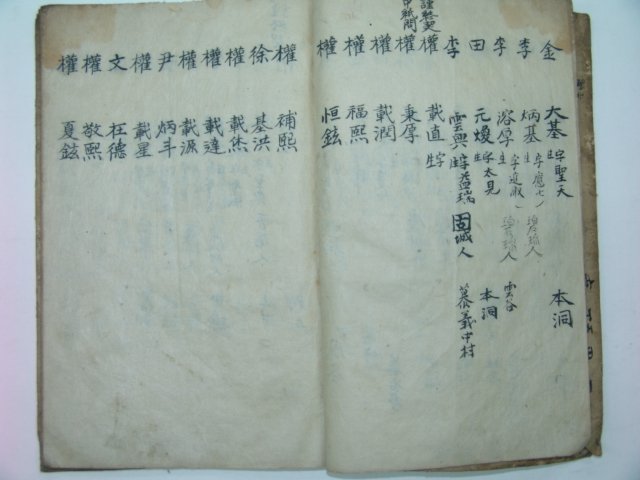 金 大基 字聖天 生 本洞
李 炳基 字應七 生 人
李 溶厚 字進 生 人
田 元煥 字太見 生 本洞
李 雲興 字益瑞 生 固城人 慕義中村
權 載直 字 生
權 秉厚
權 載潤
權 福熙
權 恒鉉
權 補熙
徐 基洪
權 載杰
權 載達
權 載源
尹 炳斗
權 載星
文 在德
權 敬熙
權 夏鉉